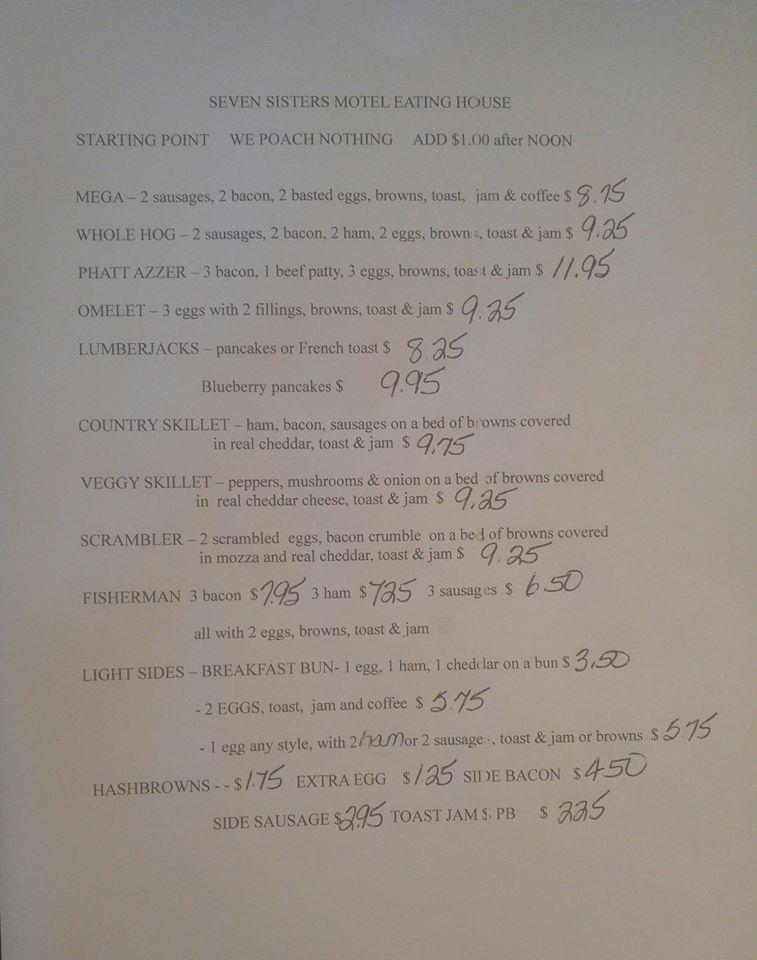 SEVEN SISTERS MOTEL EATING HOUSE
STARTING POINT WE POACH NOTHING ADD $1.00 after NOON
MEGA – 2 sausages, 2 bacon, 2 basted eggs, browns, toast, jam & coffee $ 8.75
WHOLE HOG – 2 sausages, 2 bacon, 2 ham, 2 eggs, browns, toast & jam $ 9.25
PHATT AZZER – 3 bacon, 1 beef patty, 3 eggs, browns, toast & jam $ 11.95
OMELET – 3 eggs with 2 fillings, browns, toast & jam $ 9.25
LUMBERJACKS – pancakes or French toast $ 8.25
Blueberry pancakes $ 9.95
COUNTRY SKILLET – ham, bacon, sausages on a bed of browns covered
in real cheddar, toast & jam $ 9.75
VEGGY SKILLET – peppers, mushrooms & onion on a bed of browns covered
in real cheddar cheese, toast & jam $ 9.25
SCRAMBLER – 2 scrambled eggs, bacon crumble on a bed of browns covered
in mozza and real cheddar, toast & jam $ 9.25
FISHERMAN 3 bacon $7.95 3 ham $7.25 3 sausages $ 6.50
all with 2 eggs, browns, toast & jam
LIGHT SIDES – BREAKFAST BUN- 1 egg, 1 ham, 1 cheddar on a bun $ 3.50
- 2 EGGS, toast, jam and coffee $ 5.75
- 1 egg any style, with 2 ham or 2 sausages, toast & jam or browns $ 5.75
HASHBROWNS - - $1.75 EXTRA EGG $1.25 SIDE BACON $4.50
SIDE SAUSAGE $2.95 TOAST JAM & PB $ 2.25